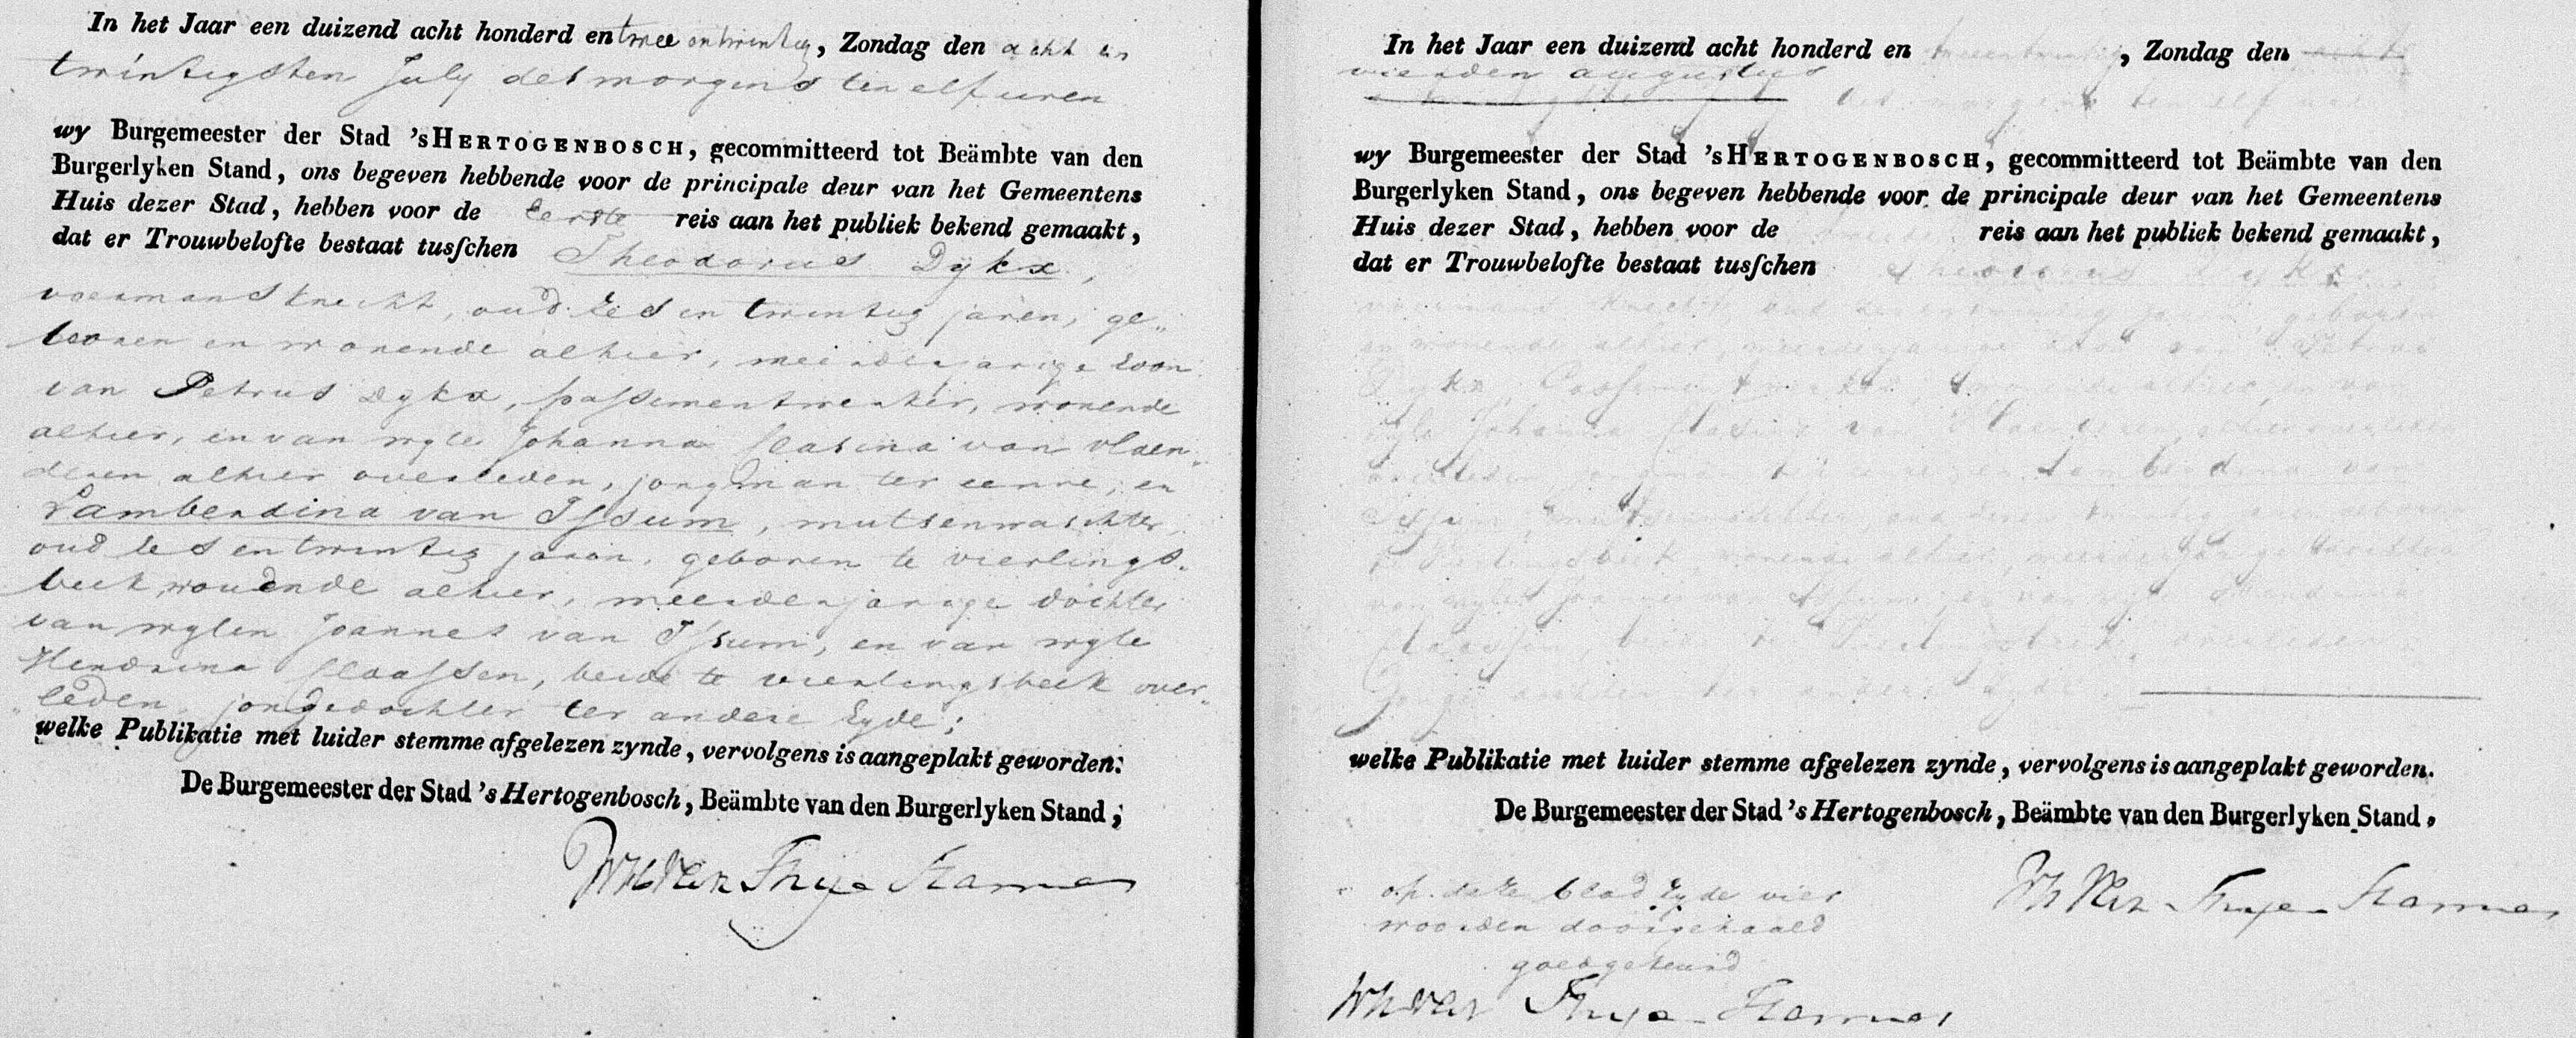 In het Jaar een duizend acht honderd en twee en twintig, Zondag den acht en
twintigsten July des morgens ten elf uren
wy Burgemeester der Stad 'sHERTOGENBOSCH, gecommitteerd tot Beämbte van den
Burgerlyken Stand, ons begeven hebbende voor de principale deur van het Gemeentens
Huis dezer Stad, hebben voor de eerste reis aan het publiek bekend gemaakt,
dat er Trouwbelofte bestaat tusſchen Theodorus Dykx,
voermans knecht, oud zes en twintig jaren, ge„
boren en wonende alhier, meerderjarige zoon
van Petrus Dykx, passementwerker, wonende
alhier, en van wyle Johanna Clasina van Vlaen„
deren alhier overleden, jongman ter eenre, en
Lamberdina van Issum, mutsenwaschter,
oud zes en twintig jaren, geboren te Vierlings„
beek, wonende alhier, meerderjarige dochter
van wylen Joannes van Issum, en van wyle
Hendrina Claassen, beide te Vierlingsbeek over„
leden, jongedochter ter andere zyde;
welke Publikatie met luider stemme afgelezen zynde, vervolgens is aangeplakt geworden.
De Burgemeester der Stad 's Hertogenbosch, Beämbte van den Burgerlyken Stand,
In het Jaar een duizend acht honderd en twee en twintig, Zondag den
vierden augustus
des morgens ten elf uren
wy Burgemeester der Stad 'sHERTOGENBOSCH, gecommitteerd tot Beämbte van den
Burgerlyken Stand, ons begeven hebbende voor de principale deur van het Gemeentens
Huis dezer Stad, hebben voor de reis aan het publiek bekend gemaakt,
dat er Trouwbelofte bestaat tusſchen Theodorus Dykx
voermans knecht oud zes en twintig jaren, geboren
en wonende alhier, meerderjarige zoon van Petrus
Dykx, Passementwerker, wonende alhier, en van
wyle Johanna Clasina van Vlaenderen, alhier
overleden, jongman ter eenre, en Lamberdina van
Issum, mutsenwaschter oud zes en twintig jaren, geboren
te Vierlingsbeek, wonende alhier, meerderjarige dochter
van wylen Joannes van Issum, en van wyle Hendrina
Claassen, beide te Vierlingsbeek overleden
Jonge dochter ter andere zyde
welke Publikatie met luider stemme afgelezen zynde, vervolgens is aangeplakt geworden.
De Burgemeester der Stad 's Hertogenbosch, Beämbte van den Burgerlyken Stand,
op deze bladzyde vier
woorden doorgehaald
goedgekeurd